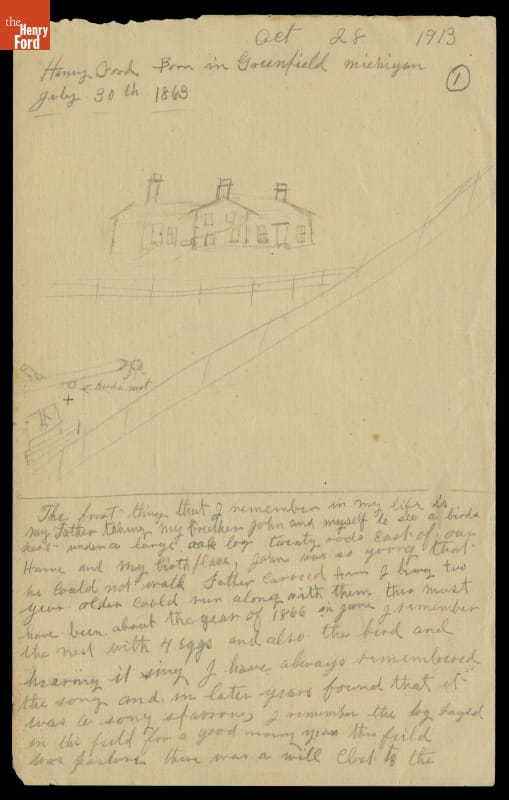 the
Henry
Ford
Oct 28 1913
Henry Ford Born in Greenfield Michigan
July 30th 1863
1
< Birds nest
The first thing that I remember in my life is
my Father taking my brother John and myself to see a birds
nest under a large oak log twenty rods East of our
Home and my birthplace, John was so young that
he could not walk Father carried Him I being two
years older could run along with them this must
have been about the year of 1866 in June I remember
the nest with 4 eggs and also the bird and
hearing it sing I have always remembered
the song and in later years found that it
was a song sparrow, I remember the log layed
in the field for a good many years this field
was pasture there was a well Close to the